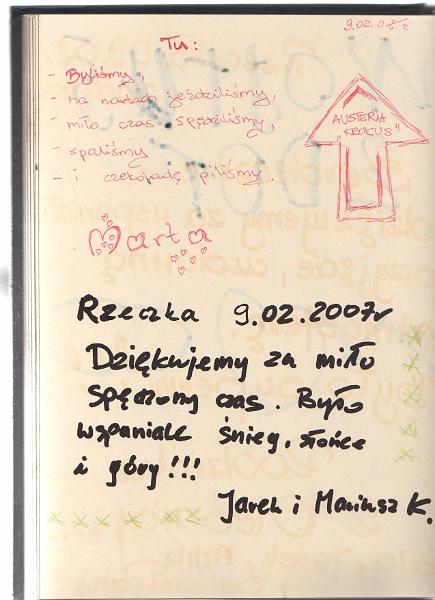 9.02.07 r
Tu:
- Byliśmy,
- na nartach jeździliśmy,
- miło czas spędziliśmy,
- spaliśmy
- i czekoladę piliśmy.
AUSTERIA
"KROCUS"
Marta
Rzeczka 9.02.2007r
Dziękujemy za miło
spędzony czas. Było
wspaniale śnieg, słońce
i góry!!!
Jarek i Mariusz K.